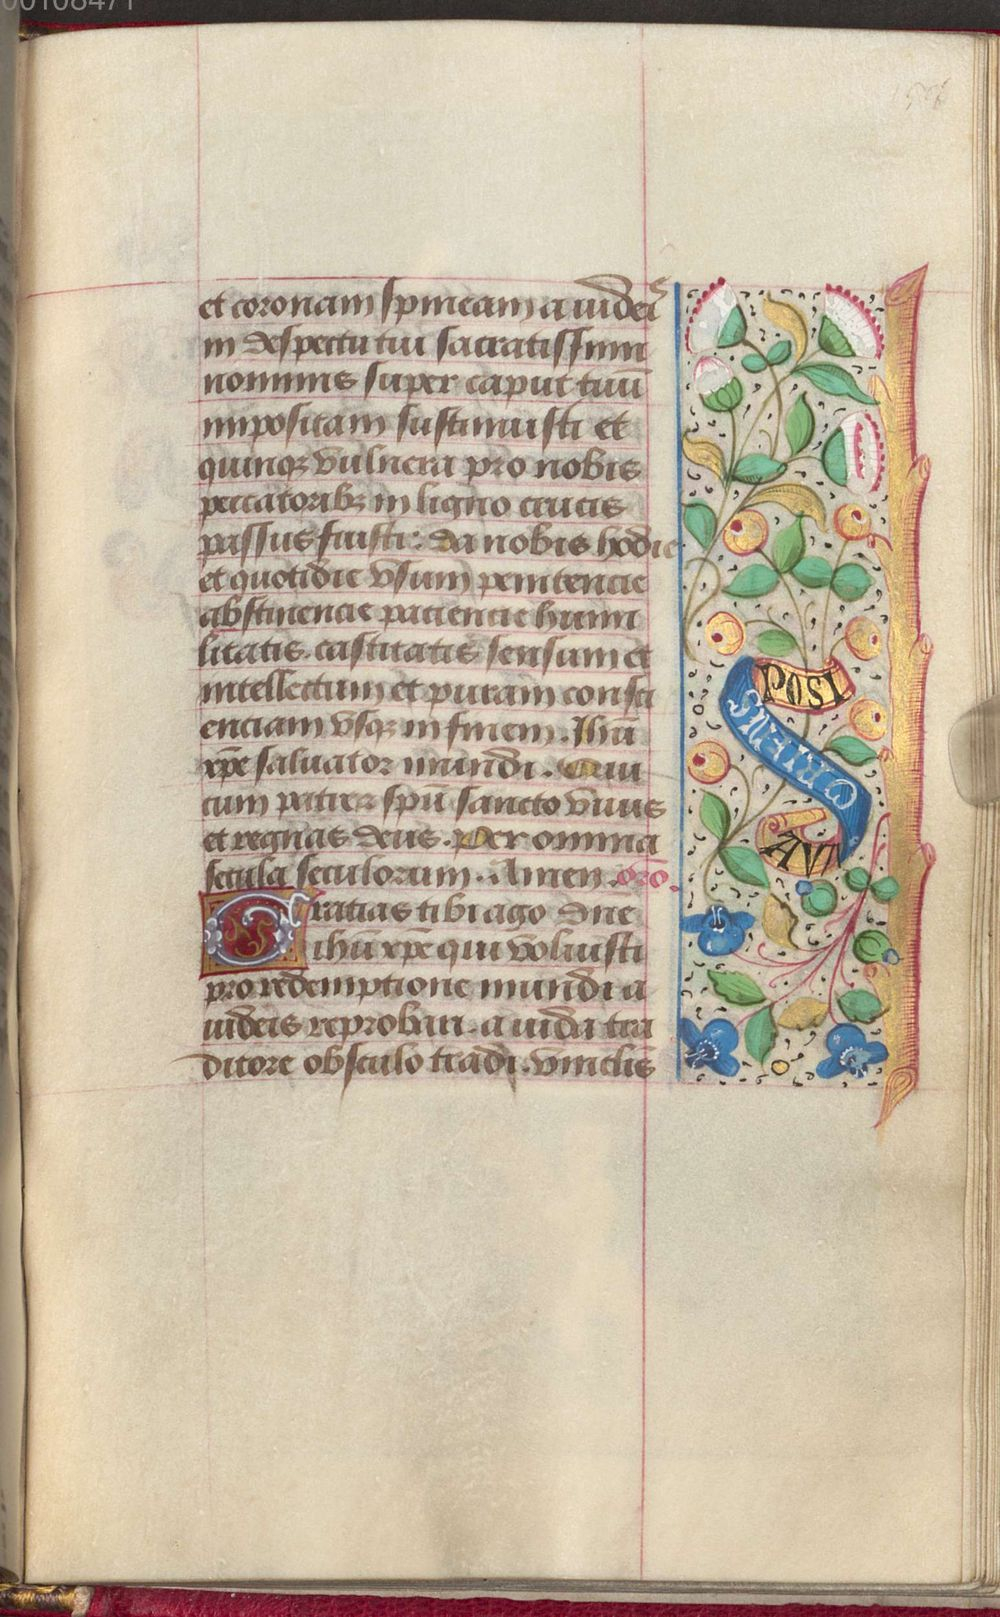 et coronam spineam a iudeis
in despectu tui sacratissimi
nominis super caput tuū
impositam sustinuisti et
quinqꝫ vulnera pro nobis
peccatoribꝫ in ligno crucis
passus fuisti: da nobis hodie
et quotidie vsum penitencie
abstinencie paciencie humi
litatis. castitatis sensum et
intellectum et puram consci
enciam vsqꝫ in finem. Ihū
xpē saluator mundi. Qui
cum patre ⁊ spū sancto viuis
et regnas deus. Per omnia
secula seculorum. Amen. orō.
Gratias tibi ago dn̄e
ihū xpē qui voluisti
pro redemptione mundi a
iudeis reprobari. a iuda tra
ditore osculo tradi. vinclis
POSI
AVI
00108471